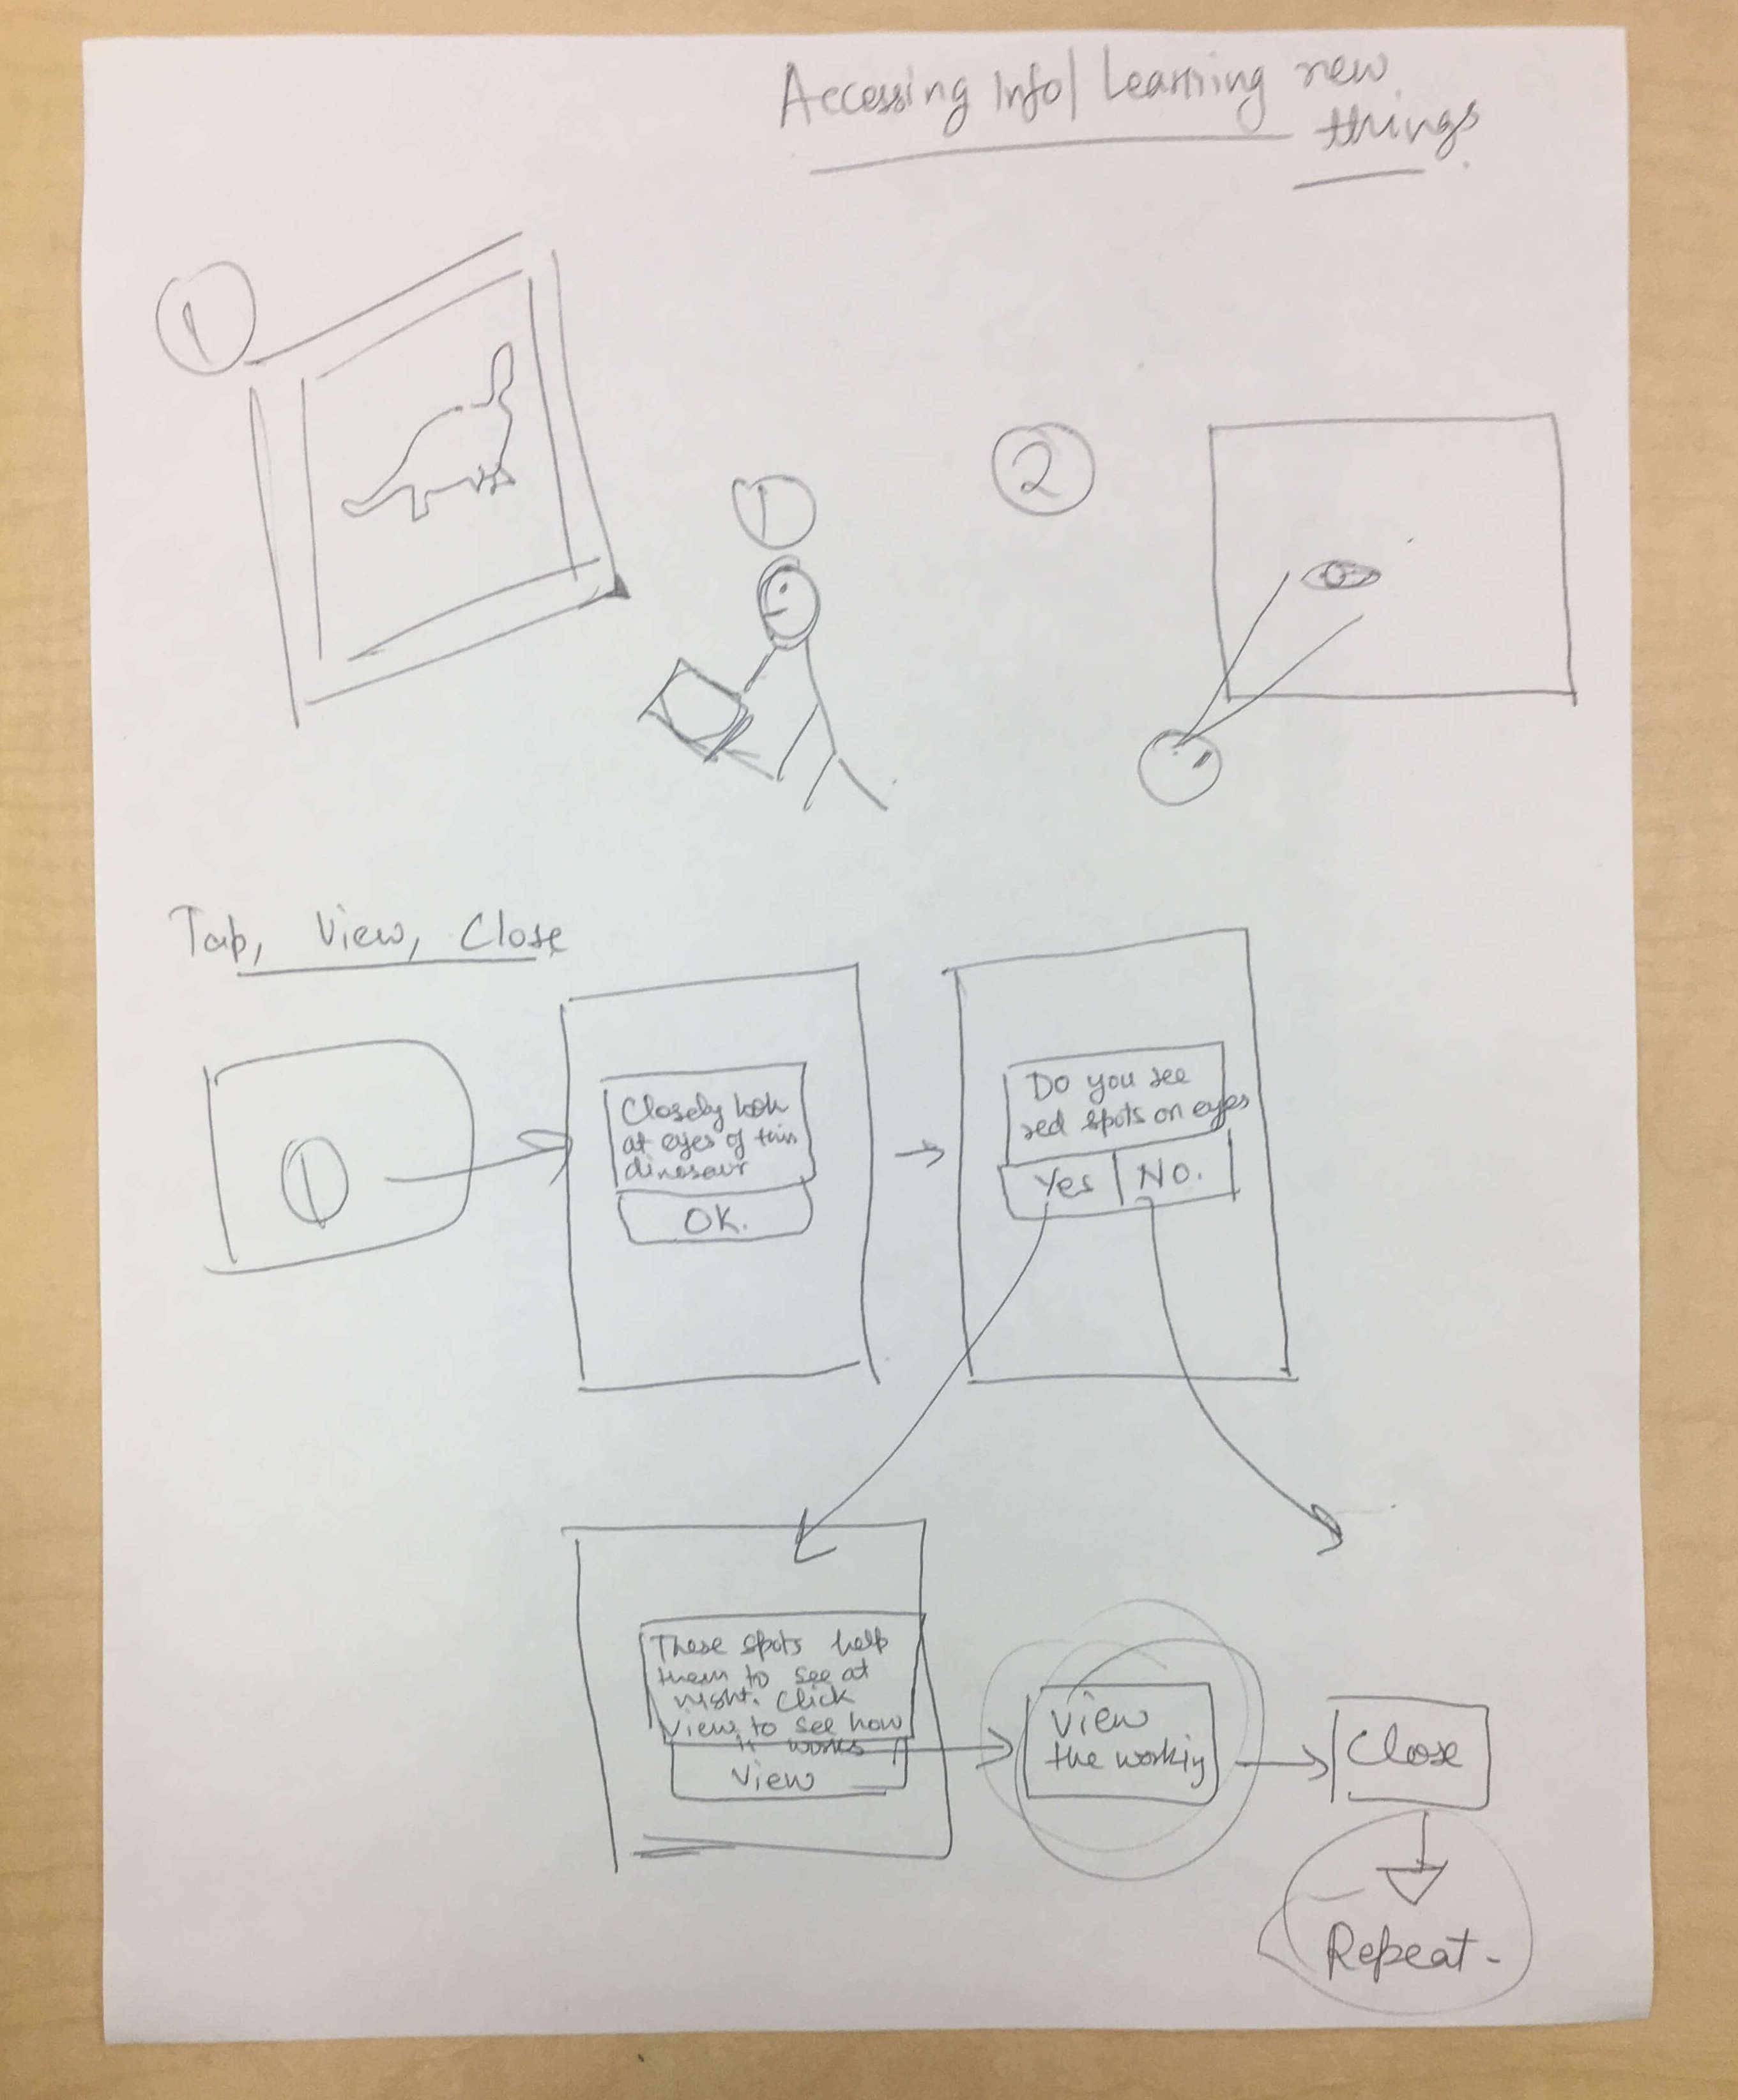 Accessing Info| Learning new
things.
1
1
2
Tap, View, Close
1
Closely look
at eyes of this
dinosaur
OK.
Do you see
red spots on eyes
Yes | No.
These spots help
them to see at
night. Click
view to see how
it works
View
View
the workig
Close
Repeat -